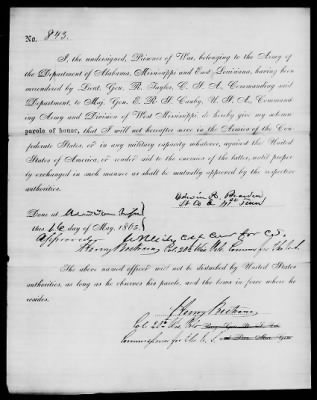 No. 843.
I, the undersigned, Prisoner of War, belonging to the Army of
the Department of Alabama, Mississippi and East Louisiana, having been
surrendered by Lieut. Gen. R. Taylor, C. S. A., Commanding said
Department, to Maj. Gen. E. R. S. Canby, U. S. A., Command-
ing Army and Division of West Mississippi, do hereby give my solemn
parole of honor, that I will not hereafter serve in the Armies of the Con-
federate States, or in any military capacity whatever, against the
United States of America, or render aid to the enemies of the latter, until proper-
ly exchanged in such manner as shall be mutually approved by the respective
authorities.
Edwin R.
Lt Co
Done at Meridian Miss
this 16 day of May, 1865.
Approved for C.S.
Henry Col 28th Wis Vols Commr for the U.S.
The above named officer will not be disturbed by United States
authorities, as long as he observes his parole, and the laws in force where he
resides.
Henry
Col 28th Wis Vols
Commissioner for the U.S.